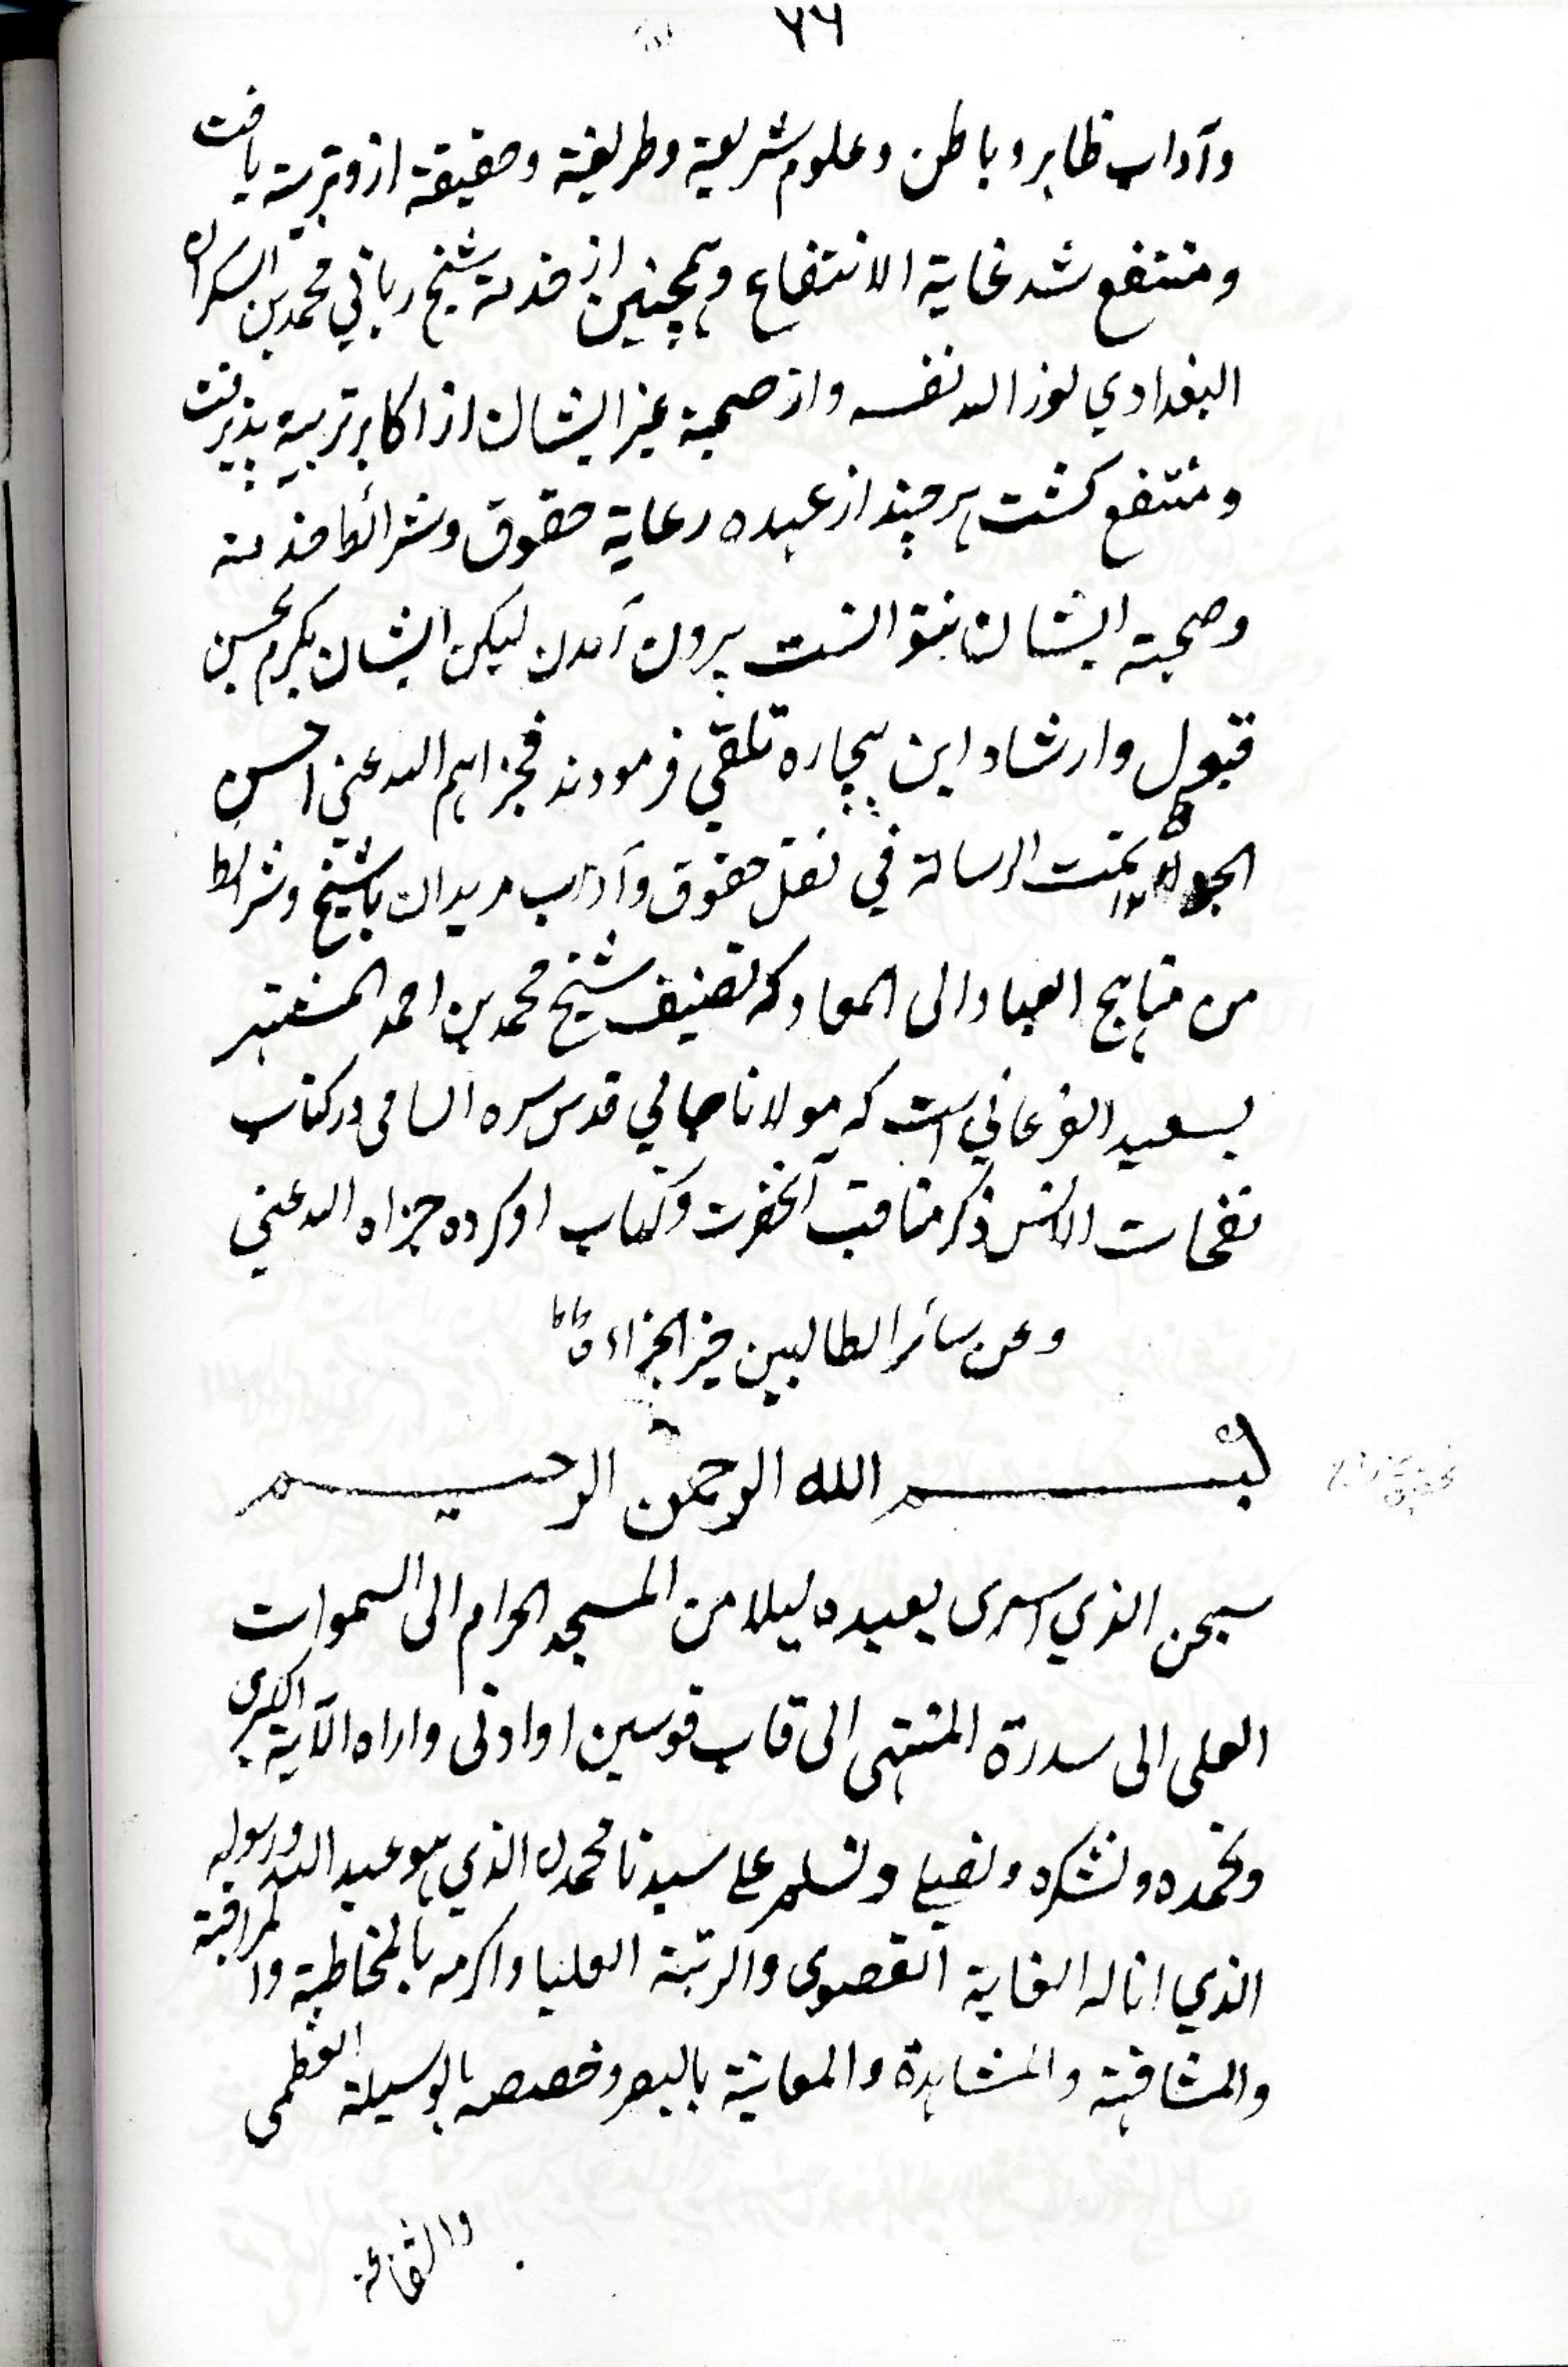 ٧٦
وآداب ظاهر وباطن وعلوم شریعة وطریقة وحقیقة ازو تربیة یافت
ومنتفع شد غایة الانتفاع وهمچنین از خدمة شیخ رباني محمد بن السکران
البغدادي نور الله نفسه واز صحبة غیر ایشان از اکابر تربیة پذیرفت
ومنتفع کشت هر چند از عهده رعایة حقوق وشرائط خدمة
وصحبة ایشان نتوانست بیرون آمدن لیکن ایشان بکرم بحسن
قبول وارشاد این بیچاره تلقي فرمودند فجزاهم الله عني احسن
الجزاء تمت الرسالة في نقل حقوق وآداب مریدان با شیخ وشرائط
من مناهج العباد الی المعاد که تصنیف شیخ محمد بن احمد المشتهر
بسعید الفرغاني است که مولانا جامي قدس سره السامی در کتاب
نفحات الانس ذکر مناقب آنحضرت وکتاب او کرده جزاه الله عني
وعن سائر الطالبین خیر الجزاء
بسم الله الرحمن الرحیم
سبحن الذي اسری بعبده لیلا من المسجد الحرام الی السموات
العلی الی سدرة المنتهی الی قاب قوسین او ادنی واراه الآیة الکبری
ونحمده ونشکره ونصلي ونسلم علی سیدنا محمدن الذي هو عبد الله ورسوله
الذي اناله الغایة القصوی والرتبة العلیا واکرمه بالمخاطبة والمراقبة
والمشافهة والمشاهدة والمعاینة بالبصر وخصصه بالوسیلة العظمی
والشفاعة